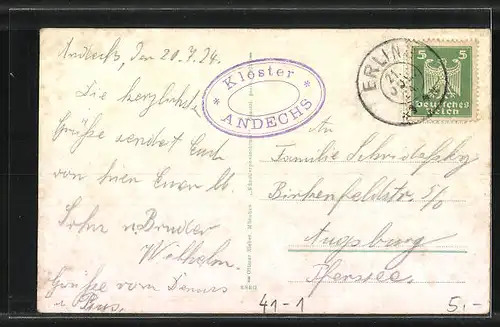 Andechs, den 20.7.24.
Die herzlichst
Grüße sendet Euch
von hier Euer lb.
Sohn u. Bruder
Wilhelm.
Grüße vom
* Kloster *
ANDECHS
ERLING
21.
5 5
Deutsches
Reich
An
Familie
Birkenfeldstr. 5/0
Augsburg
Pfersee.
41-1
5.-